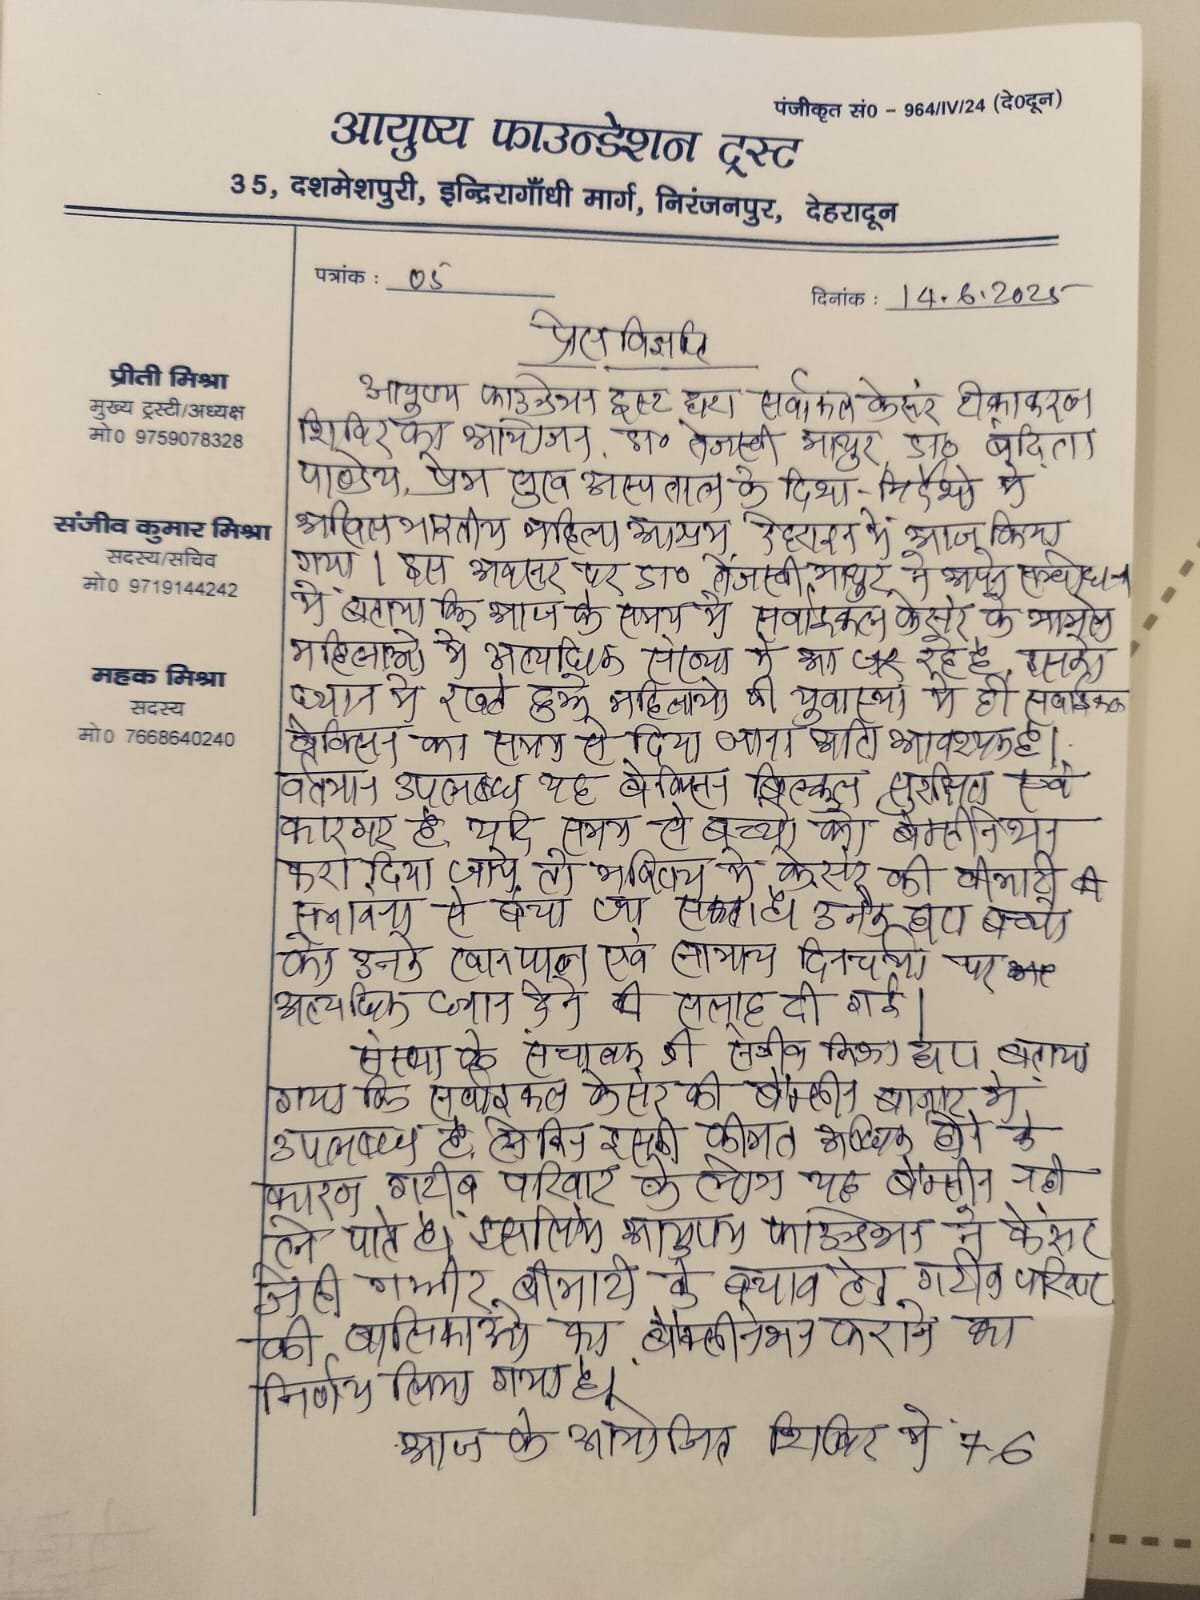 पंजीकृत सं0 - 964/IV/24 (दे0दून)
आयुष्य फाउन्डेशन ट्रस्ट
35, दशमेशपुरी, इन्दिरागाँधी मार्ग, निरंजनपुर, देहरादून
पत्रांक : 05
दिनांक : 14.6.2025
प्रीती मिश्रा
मुख्य ट्रस्टी/अध्यक्ष
मो0 9759078328
संजीव कुमार मिश्रा
सदस्य/सचिव
मो0 9719144242
महक मिश्रा
सदस्य
मो0 7668640240
प्रेस विज्ञप्ति
आयुष्य फाउन्डेशन ट्रस्ट द्वारा सर्वाकल केसंर टीकाकरण
शिविर का आयोजन, डा० तेजस्वी माथुर, डा० वंदिता
पाण्डेय, प्रेम सुख अस्पताल के दिशा-निर्देशो मे
अखिल भारतीय महिला आश्रम, देहरादून मे आज किया
गया। इस अवसर पर डा० तेजस्वी माथुर ने अपने सम्बोधन
मे बताया कि आज के समय मे सर्वाइकल केसंर के मामले
महिलाओ मे अत्यधिक संख्या मे आ रहे है, इसको
ध्यान मे रखते हुऐ महिलाओ को युवास्था मे ही सर्वाइकल
वैक्सिन का समय से दिया जाना अति आवश्यक है।
वर्तमान उपलब्ध यह वेक्सिन बिल्कुल सुरक्षित एवं
कारगर है, यदि समय से बच्चो को वैक्सीनेशन
करा दिया जाये तो भविष्य मे केसंर की बीमारी की
सभावना से बचा जा सकता है। उनके द्वारा बच्चो
को उनके खानपान एवं सामान्य दिनचर्या पर
अत्यधिक ध्यान देने की सलाह दी गई।
संस्था के संचालक श्री संजीव मिश्रा द्वारा बताया
गया कि सर्वाइकल केसंर की वैक्सीन बाजार मे
उपलब्ध है, लेकिन इसकी कीमत अधिक होने के
कारण गरीब परिवार के लोग यह वैक्सीन नही
लगे पाते है। इसलिऐ आयुष्य फाउन्डेशन ने केसंर
जैसी गम्भीर बीमारी के बचाव हेतु गरीब परिवार
की बालिकाओ का वैक्सीनेशन कराने का
निर्णय लिया गया है।
आज के आयोजित शिविर मे 76